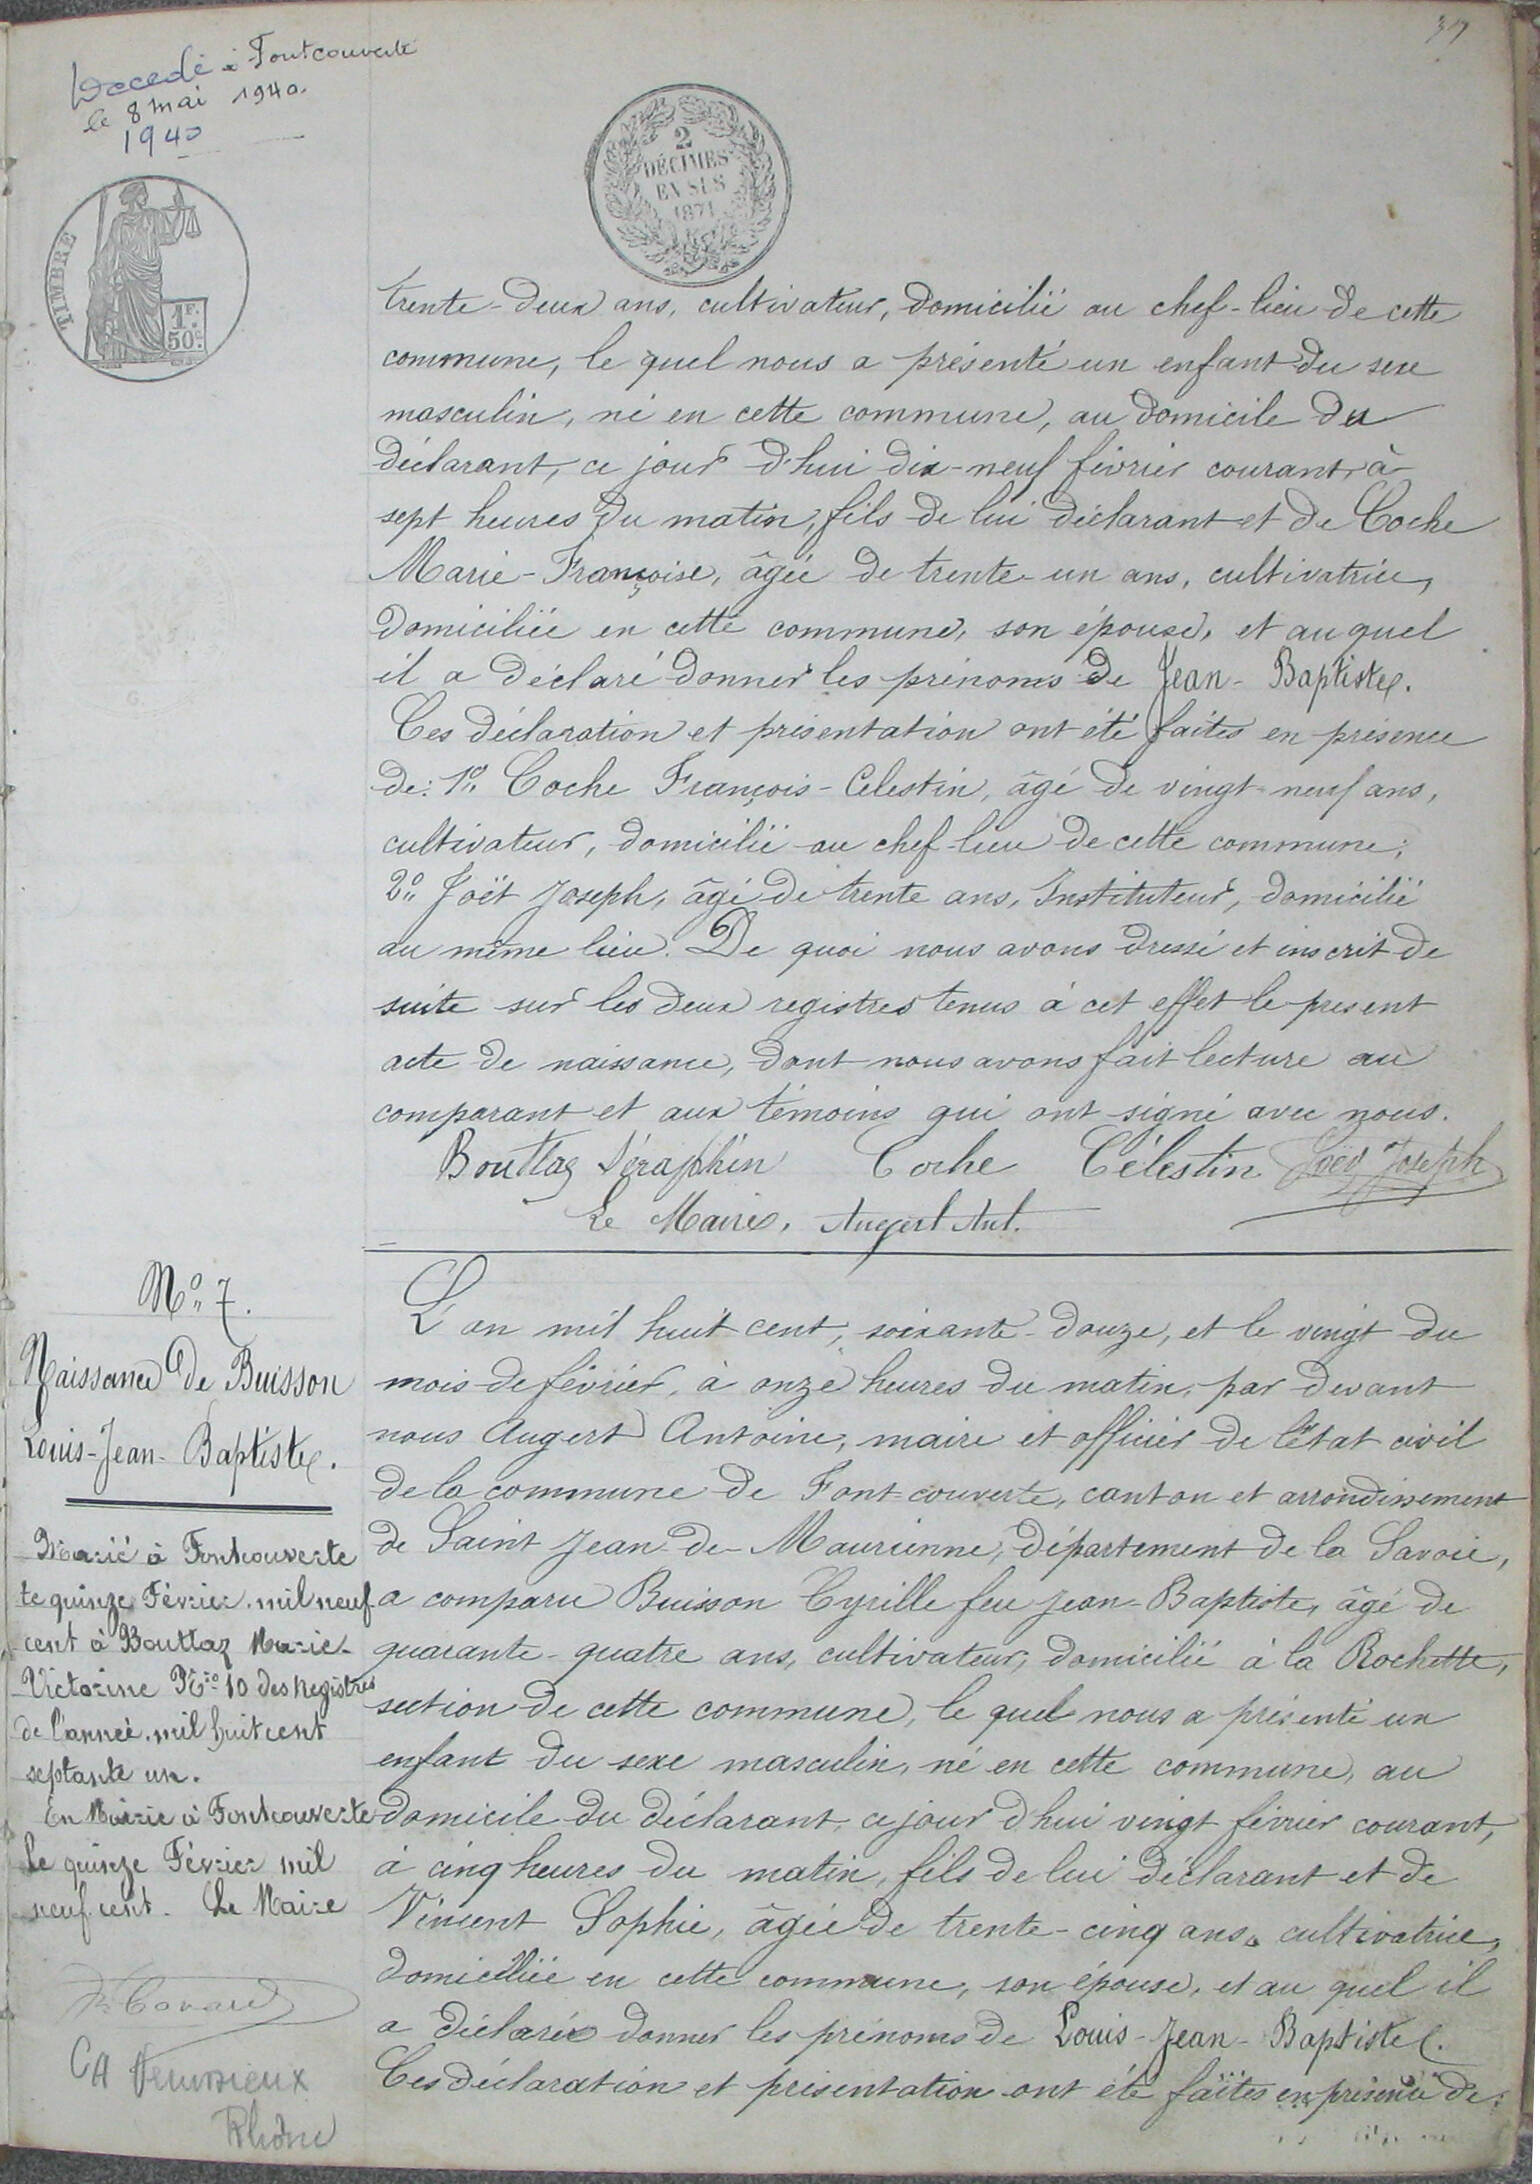 37
Décédé à Fontcouverte
le 8 mai 1940.
1940
2
DÉCIMES
EN SUS
1871
TIMBRE
1F.
50c.
trente-deux ans, cultivateur, domicilié au chef-lieu de cette
commune, le quel nous a présenté un enfant du sexe
masculin, né en cette commune, au domicile du
déclarant, ce jour d'hui dix-neuf février courant, à
sept heures du matin, fils de lui déclarant et de Coche
Marie-Françoise, âgée de trente-un ans, cultivatrice,
domiciliée en cette commune, son épouse, et au quel
il a déclaré donner les prénoms de Jean-Baptiste.
Ces déclaration et présentation ont été faites en présence
de: 1º Coche François-Célestin, âgé de vingt-neuf ans,
cultivateur, domicilié au chef-lieu de cette commune;
2º Joët Joseph, âgé de trente ans, Instituteur, domicilié
au même lieu. De quoi nous avons dressé et inscrit de
suite sur les deux registres tenus à cet effet le présent
acte de naissance, dont nous avons fait lecture au
comparant et aux témoins qui ont signé avec nous.
Bouttaz Séraphin Coche Célestin Joët Joseph
Le Maire, Augert Ant.
Nº 7.
Naissance de Buisson
Louis-Jean-Baptiste.
Marié à Fontcouverte
le quinze Février mil neuf
cent à Bouttaz Marie-
Victorine Nro 10 des Registres
de l'année mil huit cent
septante un.
En Mairie à Fontcouverte
Le quinze Février mil
neuf cent. Le Maire
CH
Rhône
L'an mil huit cent, soixante-douze, et le vingt du
mois de février, à onze heures du matin, par devant
nous Augert Antoine, maire et officier de l'état civil
de la commune de Font-couverte, canton et arrondissement
de Saint Jean de Maurienne, département de la Savoie,
a comparu Buisson Cyrille feu Jean-Baptiste, âgé de
quarante-quatre ans, cultivateur, domicilié à la Rochette,
section de cette commune, le quel nous a présenté un
enfant du sexe masculin, né en cette commune, au
domicile du déclarant, ce jour d'hui vingt février courant,
à cinq heures du matin, fils de lui déclarant et de
Vincent Sophie, âgée de trente-cinq ans, cultivatrice,
domiciliée en cette commune, son épouse, et au quel il
a déclaré donner les prénoms de Louis-Jean-Baptiste.
Ces déclaration et présentation ont été faites en présence de: